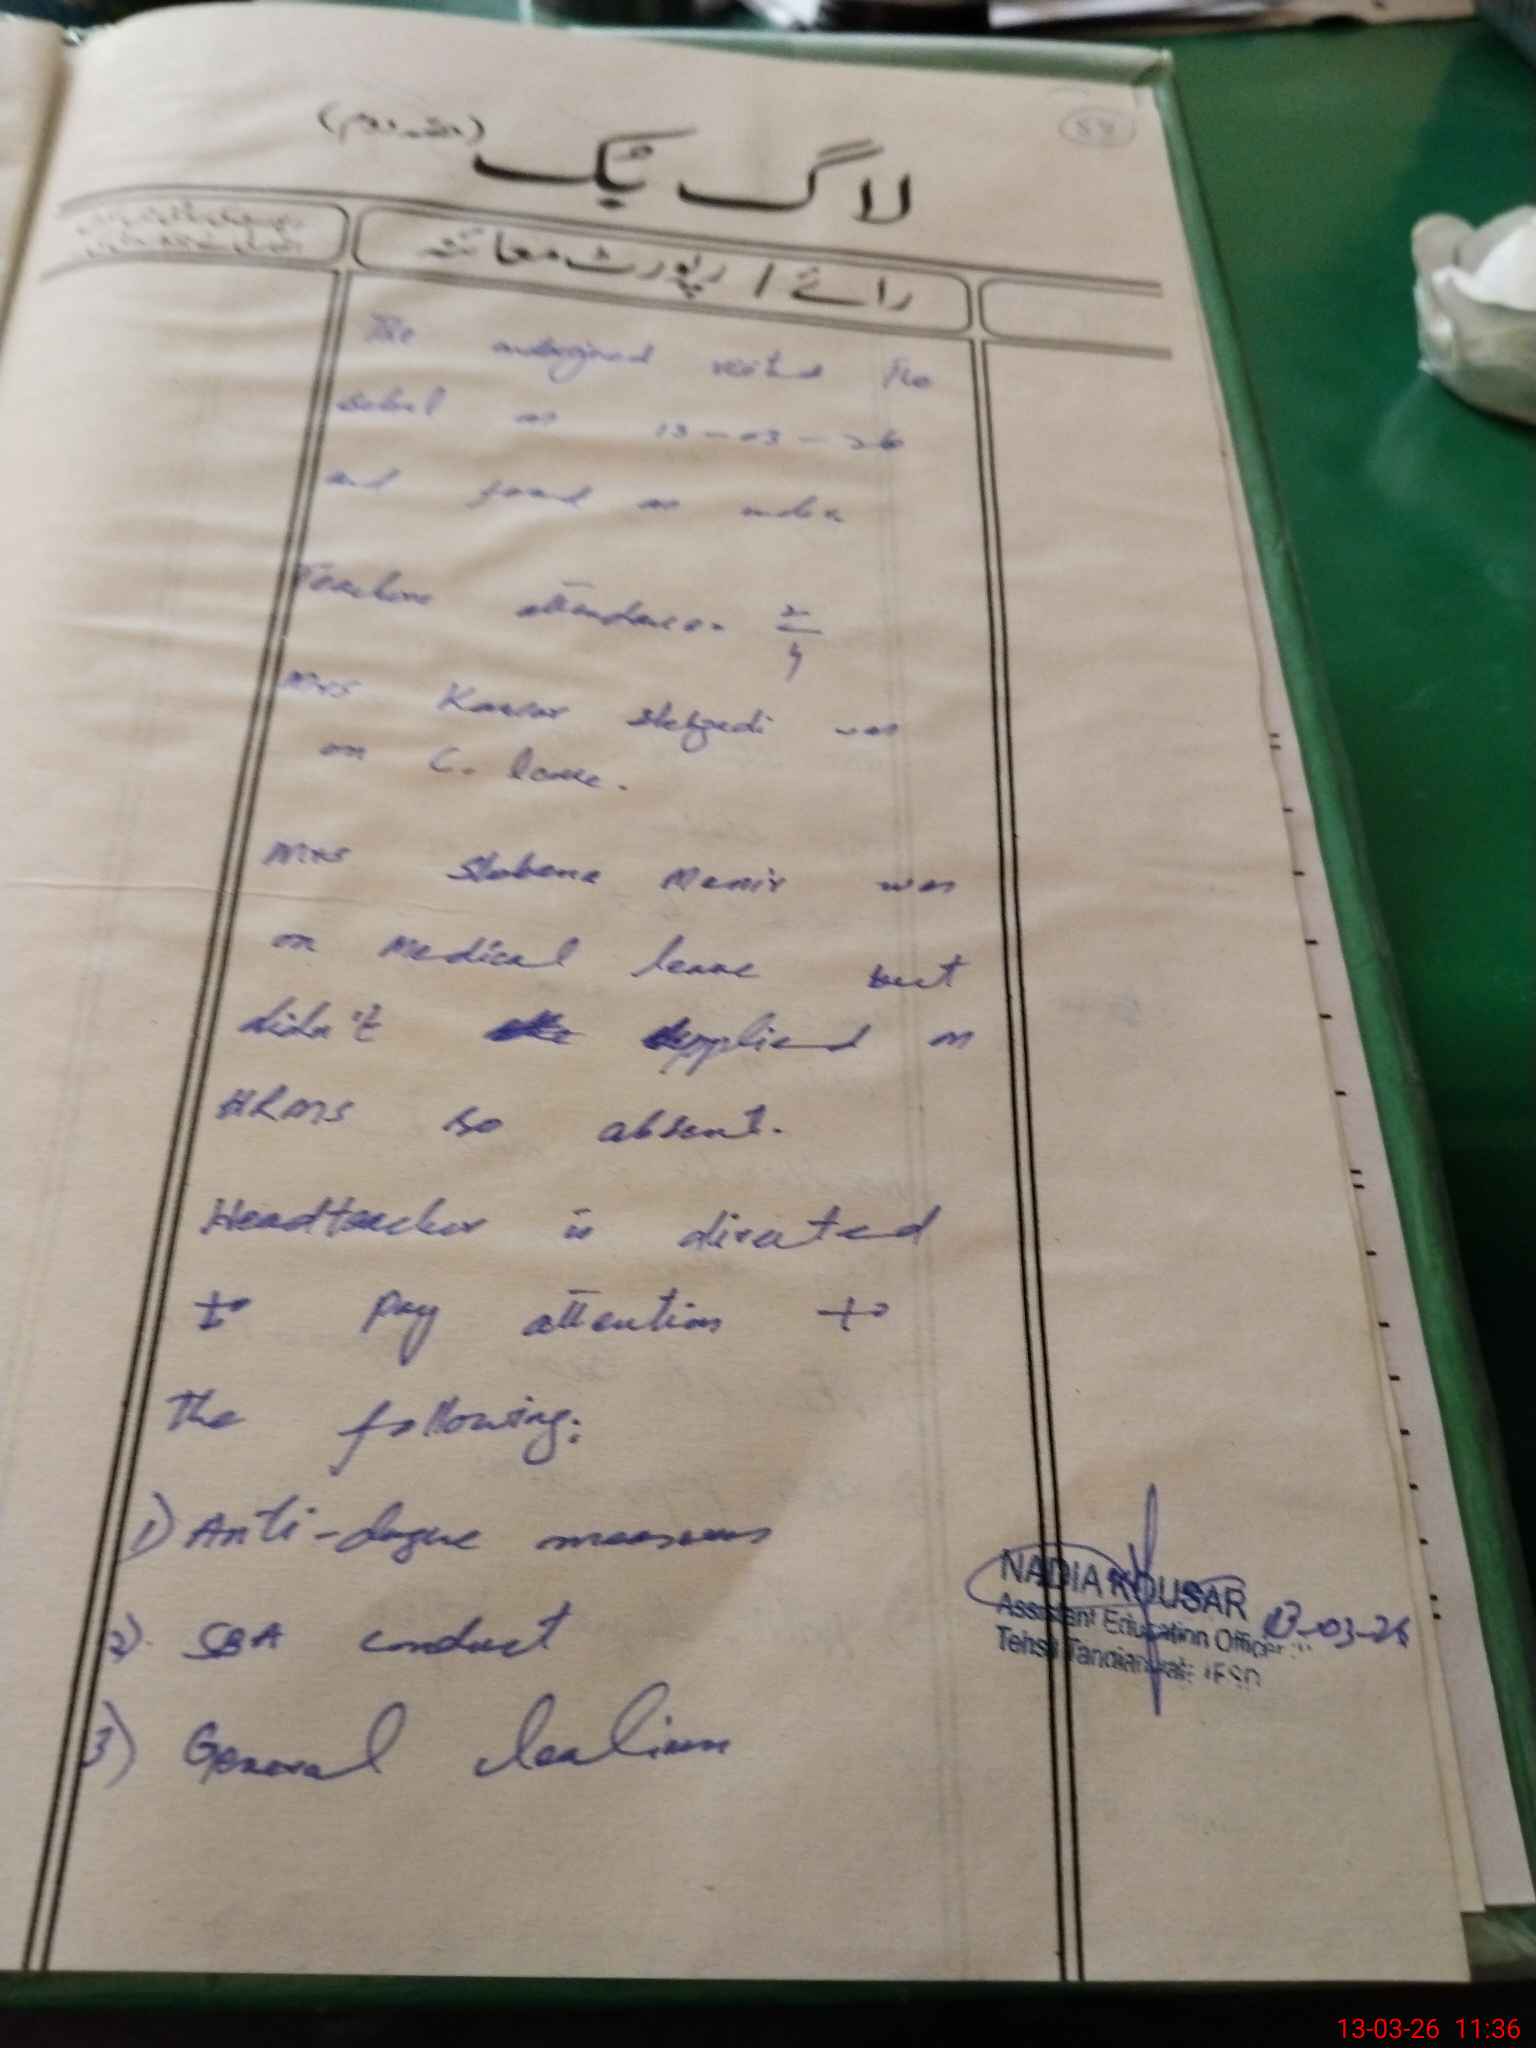 لاگ بک (حصہ دوم)
رائے / رپورٹ معائنہ
The undersigned visited the
school on 13-03-26
and found as under
Teachers attendance. 2/4
Mrs Kausar was
on C. leave.
Mrs Shabana Munir was
on Medical leave but
didn't applied on
HRMS so absent.
Headteacher is directed
to pay attention to
the following:
1) Anti-dague measures
2) SBA conduct
3) General
NADIA KOUSAR
Assistant Education Officer
Tehsil Tandianwala (FSD)
13-03-26
13-03-26 11:36